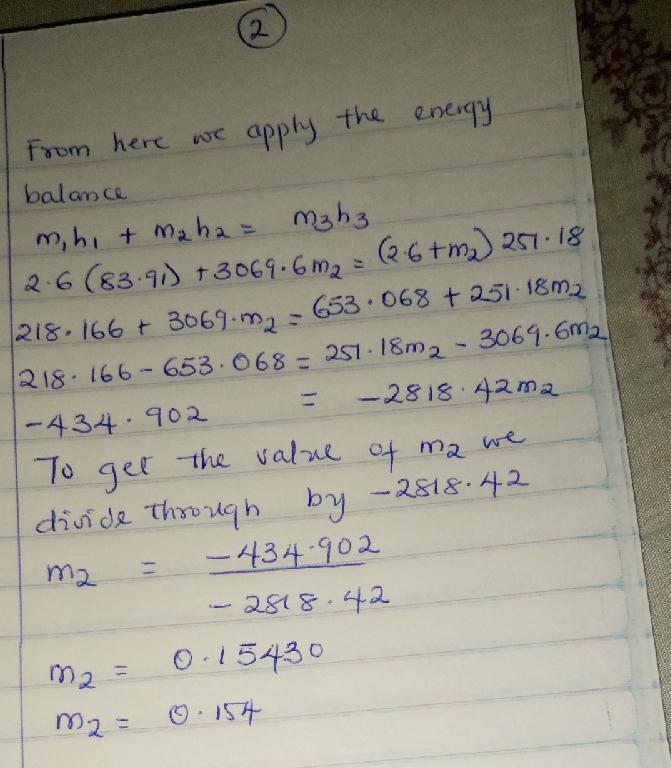 2
From here we apply the energy
balance
m1h1 + m2h2 = m3h3
2.6 (83.91) + 3069.6m2 = (2.6+m2) 251.18
218.166 + 3069.m2 = 653.068 + 251.18m2
218.166 - 653.068 = 251.18m2 - 3069.6m2
-434.902 = -2818.42m2
To get the value of m2 we
divide through by -2818.42
m2 = -434.902
-2818.42
m2 = 0.15430
m2 = 0.154